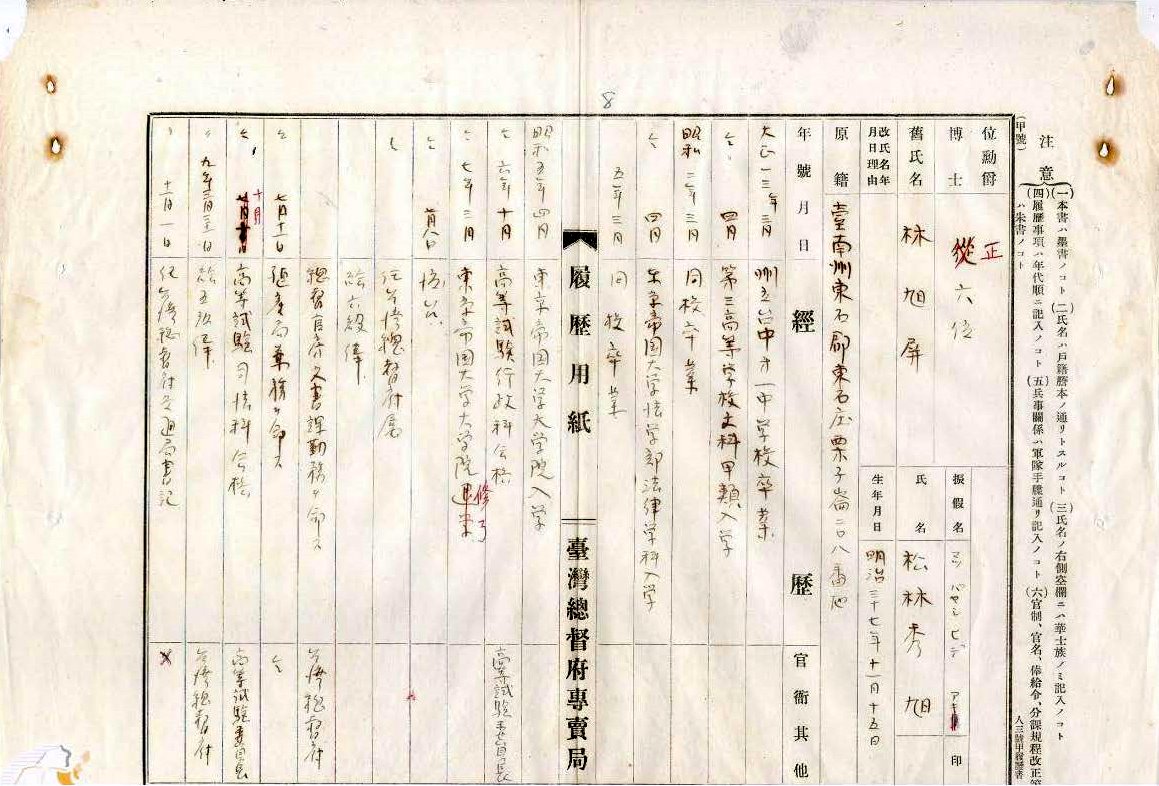 8
注意
(一)本書ハ墨書ノコト (二)氏名ハ戶籍謄本ノ通リトスルコト (三)氏名ノ右側空欄ニハ華士族ノミ記入ノコト
(四)履歷事項ハ年代順ニ記入ノコト (五)兵事關係ハ軍隊手牒通リ記入ノコト (六)官制、官名、俸給令、分課規程改正等
ハ朱書ノコト
(甲號)
位勳爵
正
從六位
博士
舊氏名
林旭屏
改氏名年月日理由
原籍
臺南州東石郡東石庄栗子崙二〇八番地
振假名
氏名
松林秀旭
印
生年月日
明治三十七年十一月十五日
年號月日
經歷
官衙其他
大正一三年三月 州立台中第一中学校卒業
仝 四月 第三高等学校文科甲類入学
昭和二年三月 同校卒業
仝 四月 東京帝国大学法学部法律学科入学
五年三月 同校卒業
履歷用紙
臺灣總督府專賣局
昭和五年四月 東京帝国大学大学院入学
六年十月 高等試験行政科合格 高等試験委員長
七年三月 東京帝国大学大学院退学
修了
任台湾総督府属
給六級俸
総督官房文書課勤務ヲ命ス 台湾総督府
仝 七月十二日 殖産局兼務ヲ命ス 仝
仝 十月 高等試験司法科合格 高等試験委員長
給五級俸 台湾総督府
十一月一日